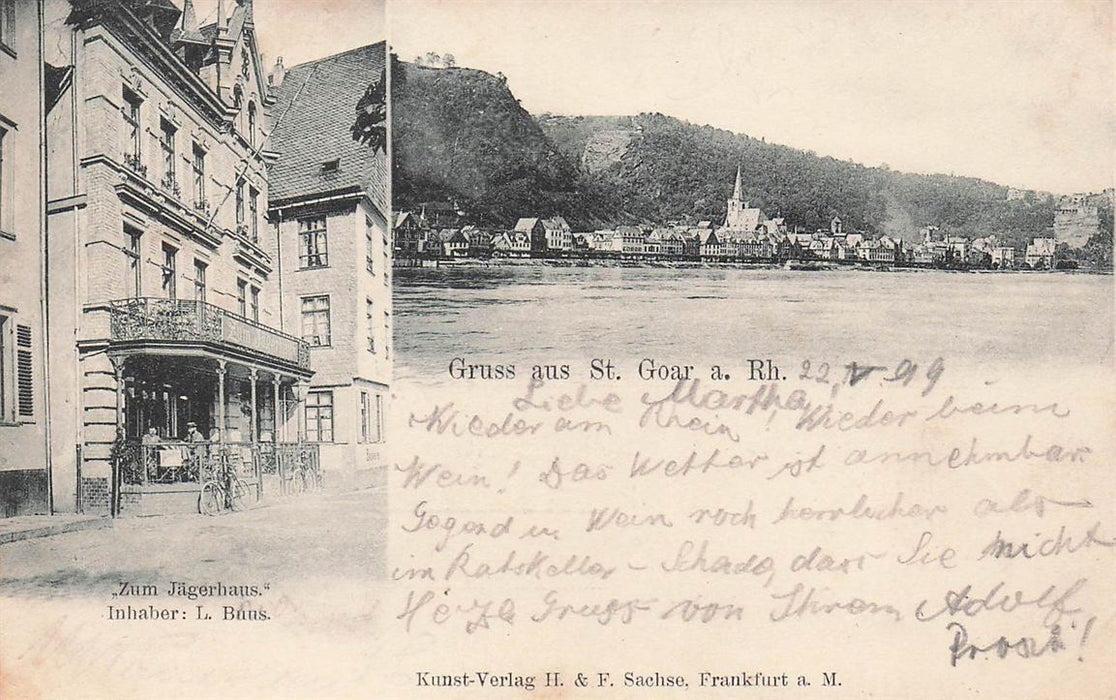 Gruss aus St. Goar a. Rh. 22. V. 99
Liebe Martha!
Wieder am Rhein! Wieder beim
Wein! Das Wetter ist annehmbar
Gegend u Wein noch herrlicher als
im Ratskeller – Schade, dass Sie nicht
Herzl Gruss von Ihrem Adolf
Prosit!
„Zum Jägerhaus.“
Inhaber: L. Buus.
Kunst-Verlag H. & F. Sachse, Frankfurt a. M.